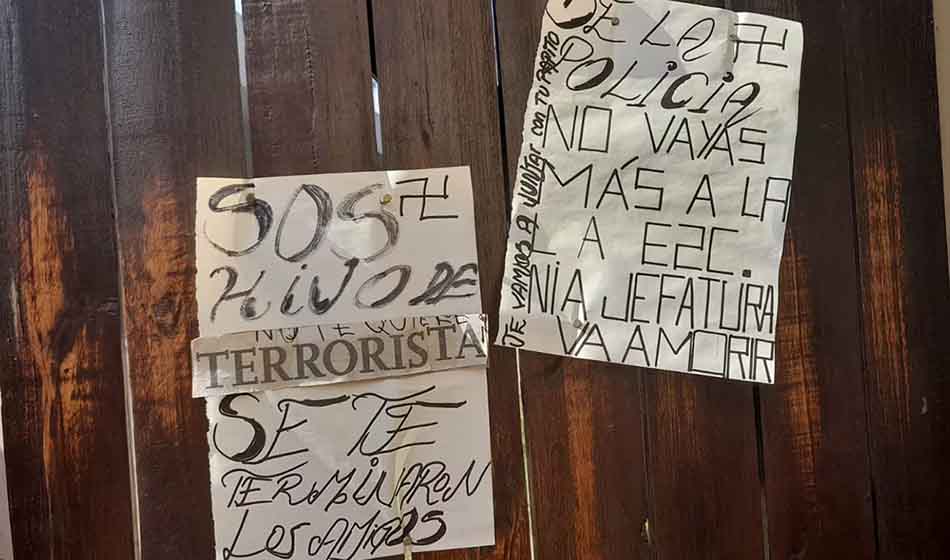 SOS 卍
HIJO DE
NO TE QUIERE
TERRORISTA
SE TE
TERMINARON
LOS AMIGOS
DE LA 卍
POLICIA
NO VAYAS
MÁS A LA
A EZC.
NI A JEFATURA
VA A MORIR
TE VAMOS A JUNTAR CON TU PAPITO